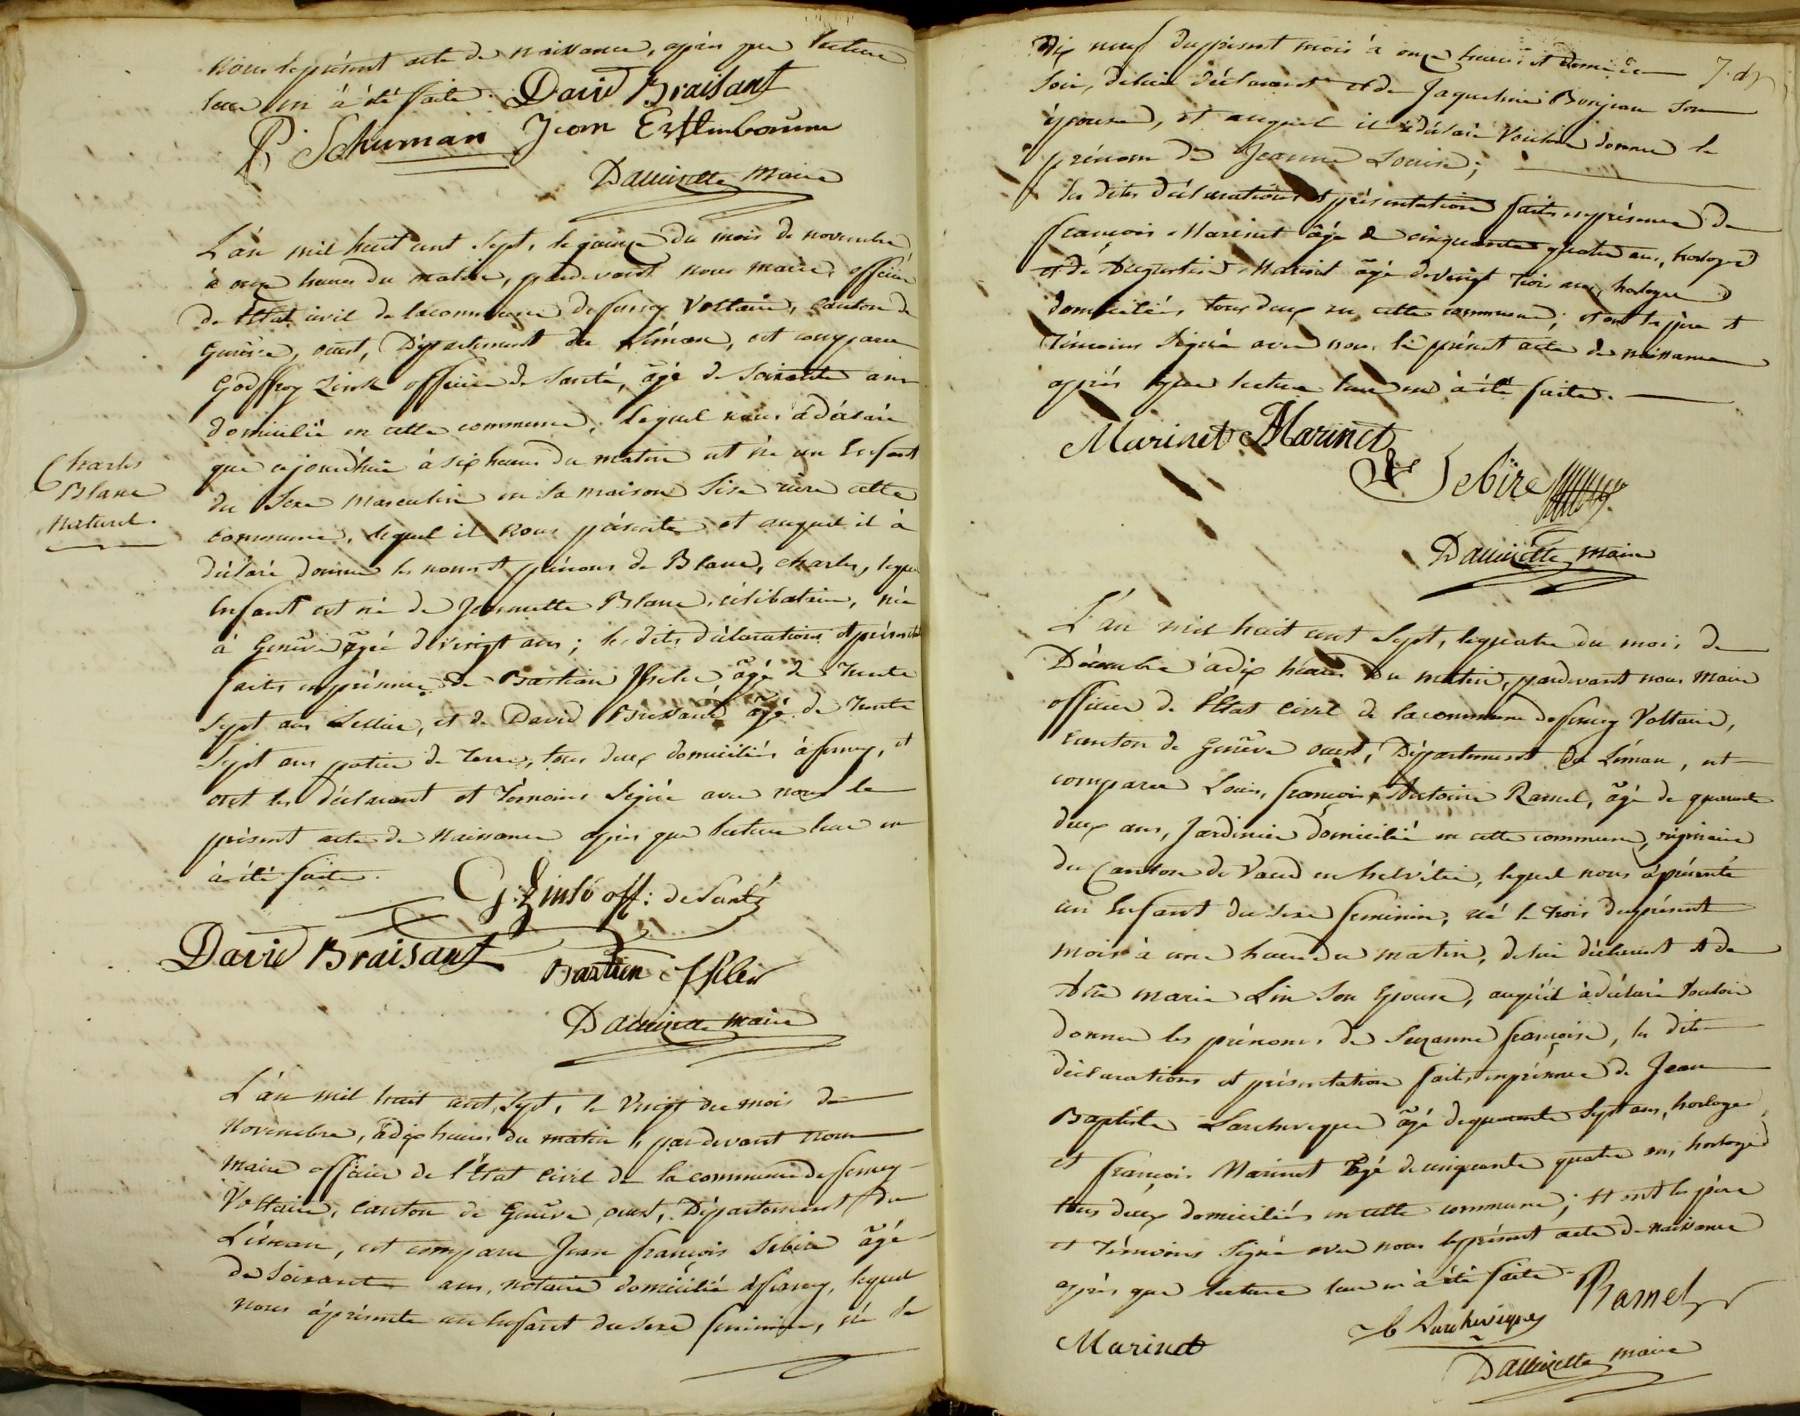 nous le présent acte de naissance, après que lecture
leur en à été faite. David Braisant
P. Schuman Jean
maire
L'án mil huit cent Sept, le quinze du mois de novembre
à onze heures du matin, pardevant nous maire, officier
de l'Etat civil de la commune de ferney Voltaire, canton de
Genêve, ouest, Département du Léman, est comparu
Godffroy officier de Santé, âgé de Soixante ans
domicilié en cette commune, lequel nous à déclaré
que cejourd'hui à six heures du matin est né un Enfant
du Sexe masculin en Sa maison Sise rière cette
commune, lequel il nous présente et auquel il à
déclaré donner les noms et prénoms de Blanc, Charles, lequel
Enfant est né de Jeannette Blanc, célibataire, née
à Genêve âgée de vingt ans; les dites déclarations et présentation
faites en présence de Bastian âgé de Trente
Sept ans Sellier, et de David âgé de Trente
Sept ans potier de Terre, tous deux domiciliés à ferney, et
ont les déclarant et Témoins Signé avec nous le
présent acte de Naissance après que lecture leur en
à été faite.
Charles
Blanc
naturel.
G. off: de Santé
David Braisant Bastien
maire
L'án mil huit cent, Sept, le Vingt du mois de
Novembre, à dix heures du matin, pardevant nous
maire officier de l'Etat Civil de la commune de ferney
Voltaire, canton de Genêve ouest, Département du
Léman, est comparu Jean françois Sebire âgé
de Soixante ans, notaire domicilié à ferney, lequel
nous à présenté un Enfant du Sexe féminin, né le
dix neuf du présent mois à onze heures et demie du
Soir, de lui déclarant et de Jaqueline Bonjean Son
épouse, et auquel il à déclaré Vouloir donner le
prénom de Jeanne Louise;
les dites déclarations et présentation faites en présence de
francois Marinet âgé de cinquante quatre ans, horloger
et de Augustin Marinet âgé de vingt trois ans, horloger
domiciliés, tous deux en cette commune; et ont le père et
Témoins Signé avec nous le présent acte de naissance
après que lecture leur en à été faite.
Marinet Marinet
Sebire
maire
L'án mil huit cent Sept, le quatre du mois de
Décembre à dix heures du matin, pardevant nous Maire
officier de l'Etat Civil de la commune de ferney Voltaire,
canton de Genêve ouest, Département du Léman, est
comparu Louis, françois, Antoine Ramel, âgé de quarante
deux ans, Jardinier domicilié en cette commune, originaire
du Canton de Vaud en helvétie, lequel nous à présenté
un Enfant du Sexe féminin, né le trois du présent
mois à une heure du matin, de lui déclarant et de
marie Lin Son Epouse, auquel à déclaré Vouloir
donner les prénoms de Suzanne françoise, les dites
déclarations et présentation faites en présence de Jean
Baptiste Larcheveque âgé de quarante Sept ans, horloger,
et françois Marinet âgé de cinquante quatre ans, horloger
tous deux domiciliés en cette commune; et ont les père
et Témoins Signé avec nous le présent acte de naissance
après que lecture leur en à été faite.
Ramel
Marinet
maire